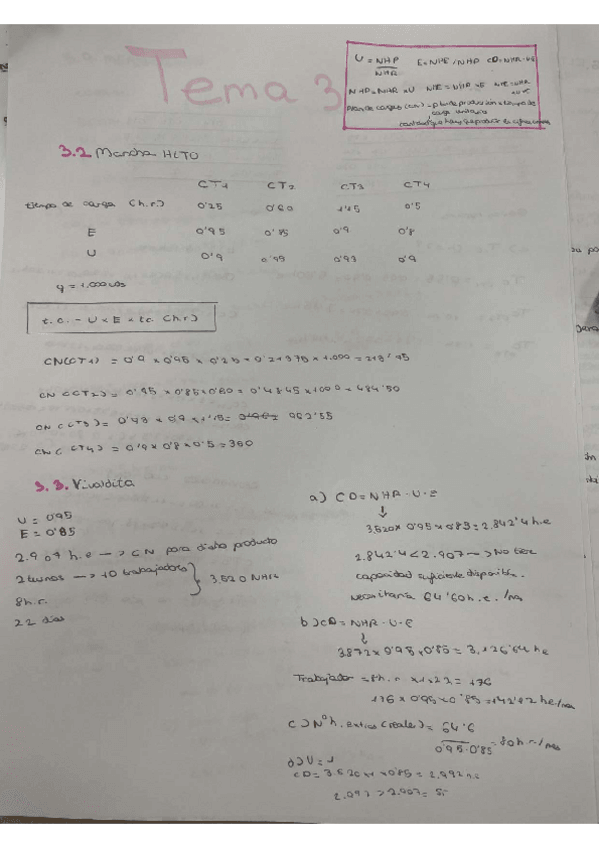 Tema 3
U = NHP / NHR E = NHE / NHP CD = NHR · U·E
NHP = NHR × U NHE = NHP × E
3.2 Marcha HLTO
CT1 CT2 CT3 CT4
tiempo de carga (h.r.) 0'25 0'60 1'15 0'5
E 0'95 0'85 0'9 0'8
U 0'9 0'95 0'93 0'9
q = 1.000 uds
t.c. = U × E × tc (h.r.)
CN(CT1) = 0'9 × 0'95 × 0'25 = 0'21375 × 1.000 = 213'75
CN (CT2) = 0'95 × 0'85 × 0'60 = 0'4845 × 1000 = 484'50
CN (CT3) = 0'93 × 0'9 × 1'15 = 962'55
CN (CT4) = 0'9 × 0'8 × 0'5 = 360
3.3. Vivaldita
U = 0'95
E = 0'85
2.907 h.e → CN para dicho producto
2 turnos → 10 trabajadores
3.520 NHR
8h.r.
22 días
a) CD = NHR · U · E
3.520 × 0'95 × 0'85 = 2.842'4 h.e
2.842'4 < 2.907 → No tiene
capacidad suficiente disponible.
Necesitaría 64'60 h.e. / mes
b) CD = NHR · U · E
3872 × 0'95 × 0'85 = 3.126'64 h.e
Trabajador = 8h.r × 1 × 22 = 176
176 × 0'95 × 0'85 = 142'12 h.e/mes
c) Nº h. extras (reales) = 64'6 / 0'95·0'85 = 80 h.r./mes
d) U = 1
CD = 3.520 × 1 × 0'85 = 2.992 h.e
2.992 > 2.907 = Si